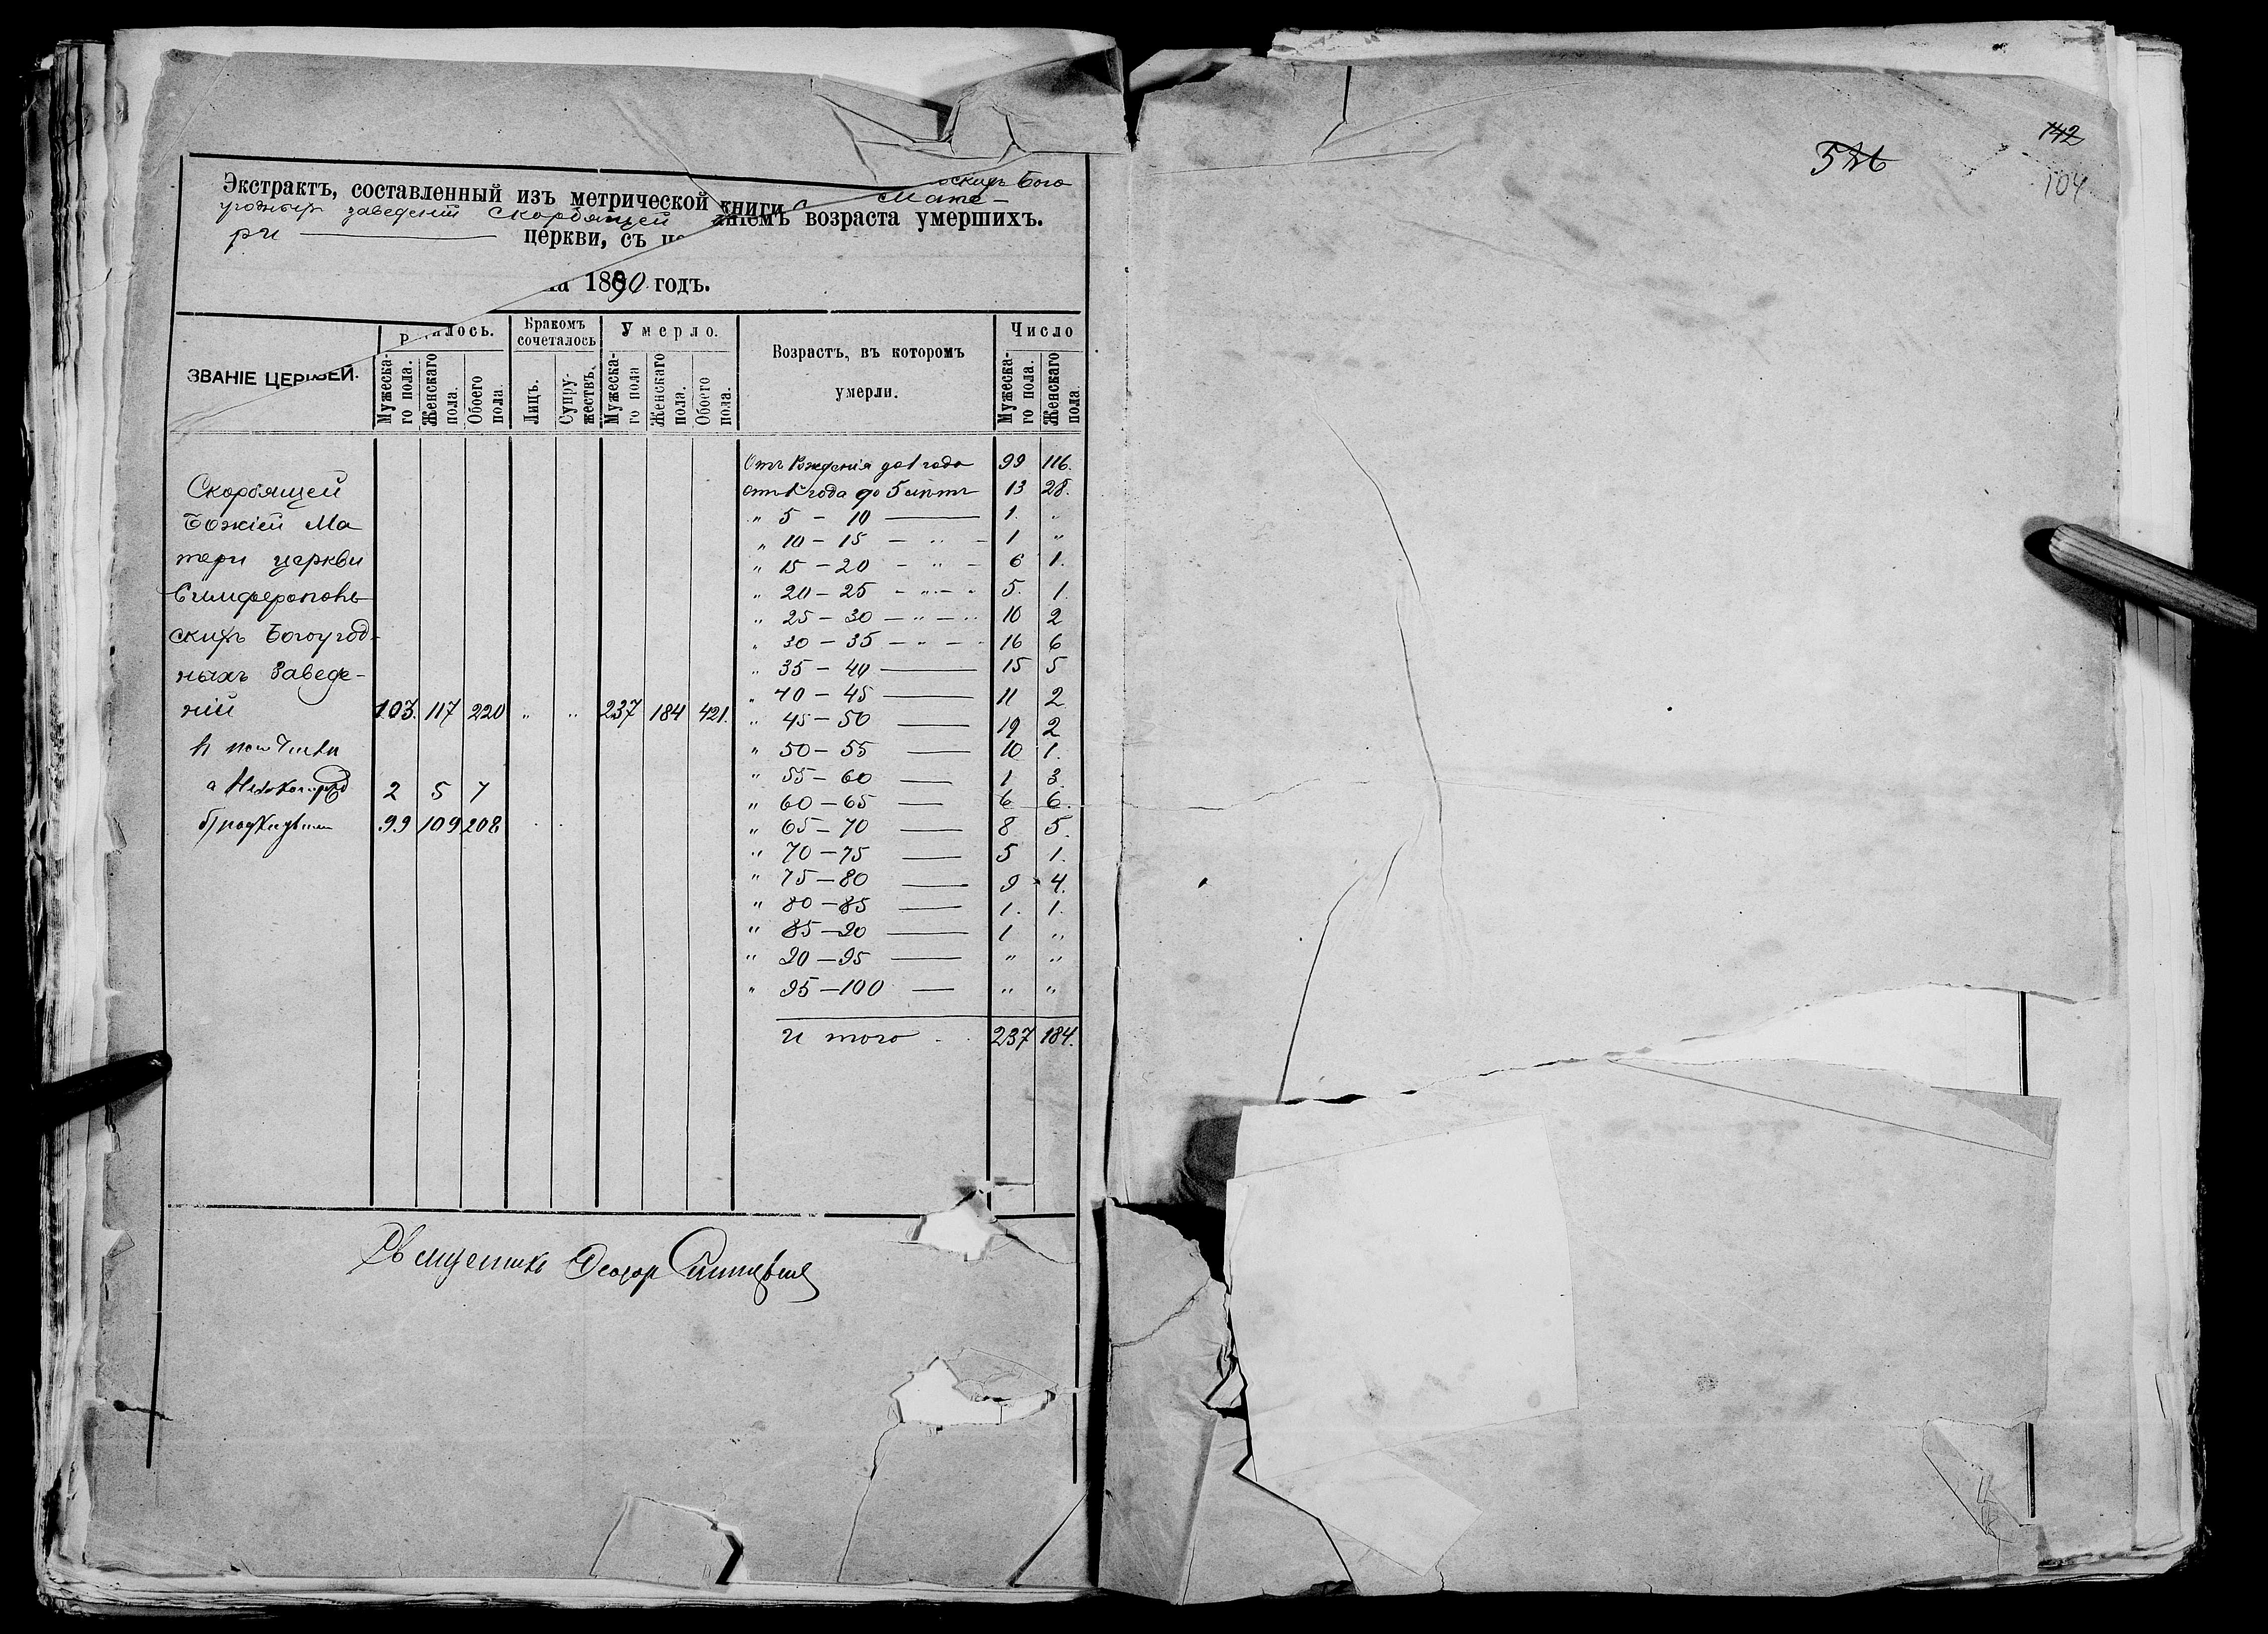 Экстрактъ, составленный изъ метрической книги скихъ Бого
угодныхъ заведеній Скорбящей Мате-
ри церкви, съ аніемъ возраста умершихъ.
на 1890 годъ.
ЗВАНІЕ ЦЕРКВЕЙ. Р илось. Бракомъ сочеталось Умерло. Возрастъ, въ которомъ умерли. Число
Мужеска-го пола. Женскаго пола. Обоего пола Лицъ. Супру-жествъ. Мужеска-го пола Женскаго пола. Обоего пола. Мужеска-го пола. Женскаго пола
Отъ Рожденія до 1 года 99 116.
Скорбящей отъ 1 года до 5 лѣтъ 13 28.
Божіей Ма " 5 – 10 1. "
" 10 – 15 – " – 1 "
тери церкви " 15 – 20 – " – 6 1.
Симферополь " 20 – 25 – " – " 5. 1.
" 25 – 30 – " – " 10 2
скихъ Богоугод- " 30 – 35 – " – " 16 6
ныхъ Заведе- " 35 – 40 15 5
" 40 – 45 11 2
ній 103. 117 220 " " 237 184 421. " 45 – 50 19 2
" 50 – 55 10 1.
" 55 – 60 1 3
а 2 5 7 " 60 – 65 6 6.
б) 99 109 208 " 65 – 70 8 5.
" 70 – 75 5 1.
" 75 – 80 9 4.
" 80 – 85 1. 1.
" 85 – 90 1 "
" 90 – 95 " "
" 95 – 100 " "
И того 237 184.
Священникъ Феодор
526
142
104